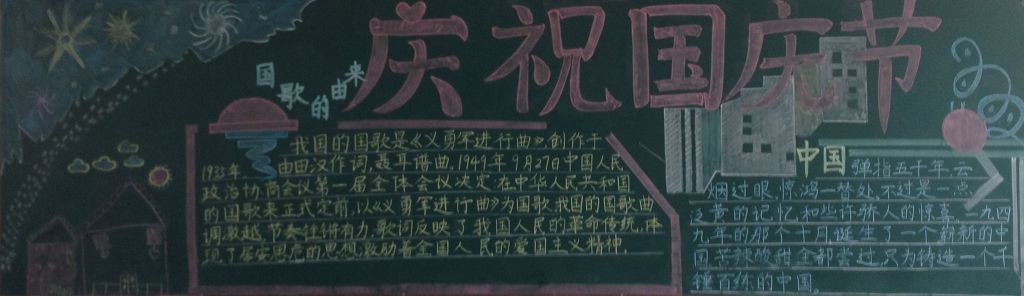 庆祝国庆节
国歌的由来
我国的国歌是《义勇军进行曲》,创作于
1935年 由田汉作词,聂耳谱曲,1949年9月27日中国人民
政治协商会议第一届全体会议决定在中华人民共和国
的国歌未正式定前,以《义勇军进行曲》为国歌,我国的国歌曲
调激越,节奏铿锵有力,歌词反映了我国人民的革命传统,体
现了居安思危的思想,激励着全国人民的爱国主义精神.
中国
弹指五千年,云
烟过眼,惊鸿一瞥处,不过是一点
泛黄的记忆和些许骄人的惊喜,一九四
九年的那个十月诞生了一个崭新的中
国,苦辣酸甜全都尝过只为铸造一个千
锤百练的中国.